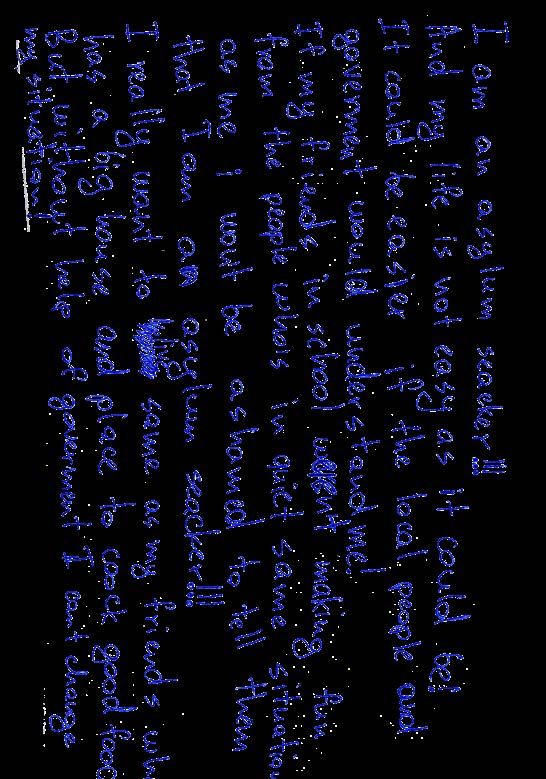 I am an asylum seeker!!!
And my life is not easy as It could be!
It could be easier if the local people and
goverment would understand me!
If my friends in school weren't making fun
from the people whois in quiet same situation
as me I wont be ashamed to tell them
that I am an asylum seacker!!!!
I really want to live same as my friends wh
has a big house and place to coock good food
But without help of goverment I cant change
my situation!